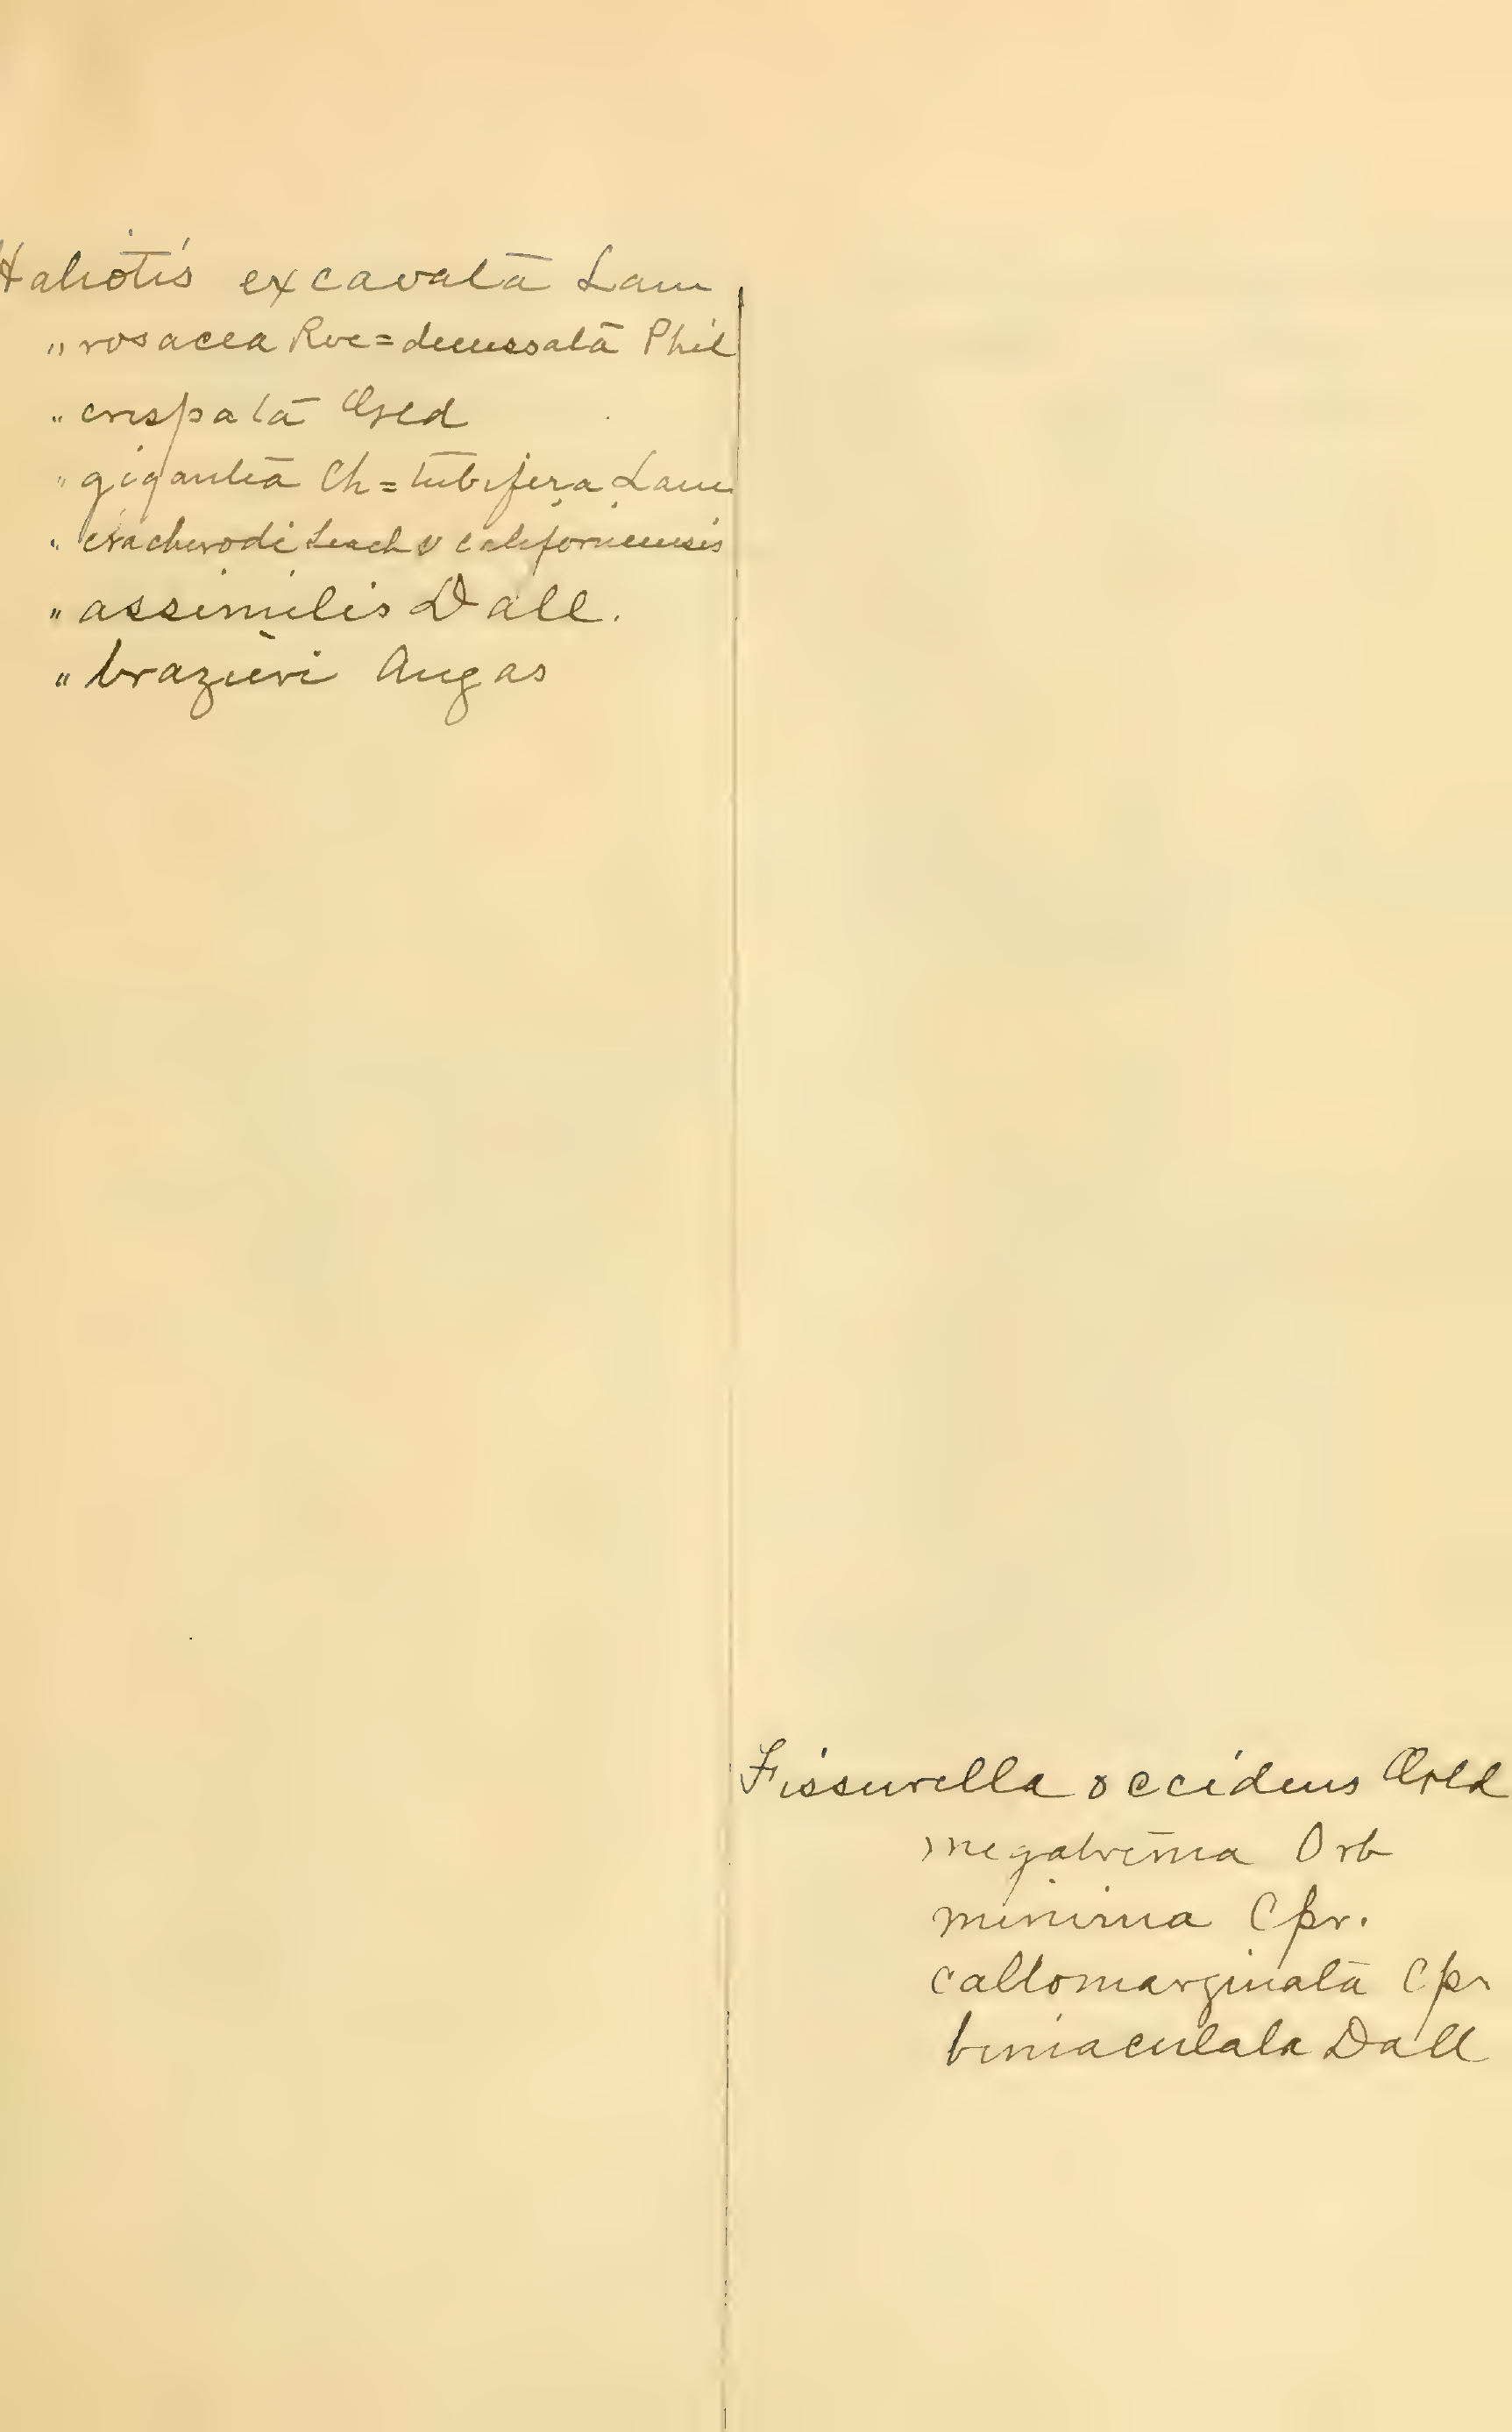 Haliotis excavata Lam
" rosacea Rve = decussata Phil
" crispata Gld
" gigantea Ch = tubifera Lam
" cracherodi Leach v californiensis
" assimilis Dall.
" brazieri Angas
Fissurella occidens Gld
megatrema Orb
minima Cpr.
callomarginata Cpr
bimaculata Dall